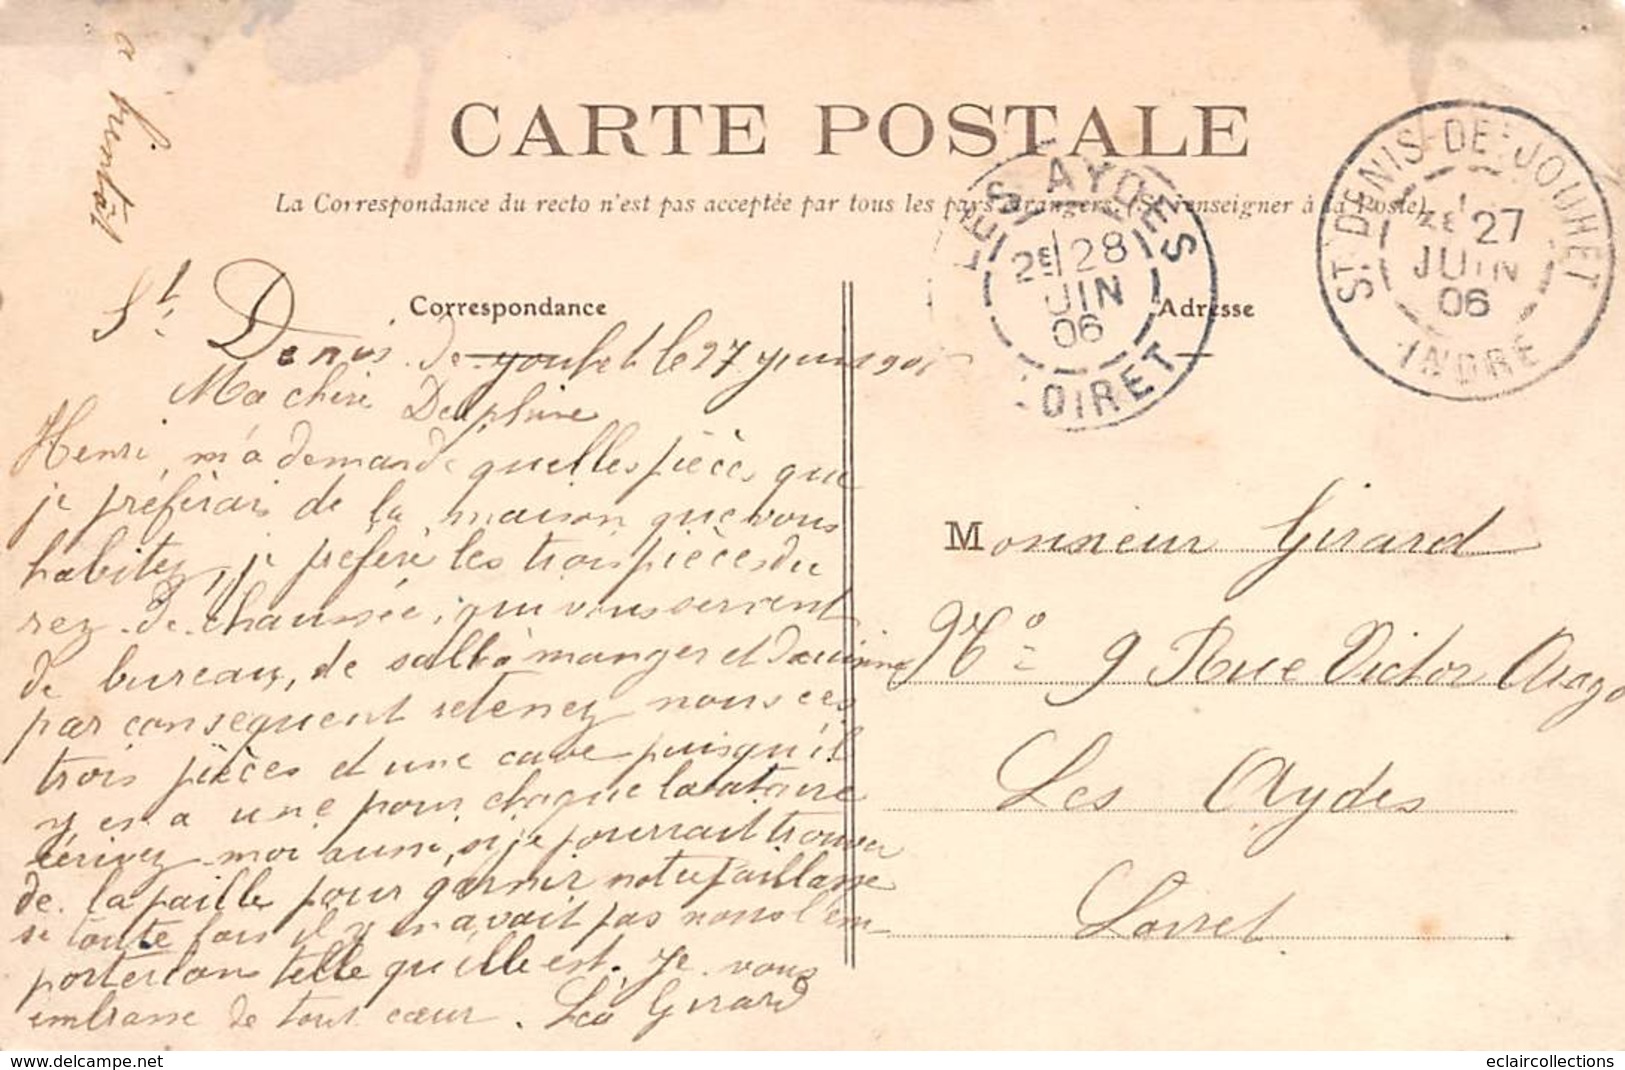 a bientôt
CARTE POSTALE
La Correspondance du recto n'est pas acceptée par tous les pays étrangers. (Se renseigner à la Poste).
LES AYDES
2E 28
JUIN
06
LOIRET
ST DENIS-DE-JOUHET
27
JUIN
06
INDRE
Correspondance
Adresse
St Denis de youhet le 27 yuin 190
Ma chère Delphine
Henri, m'a demandé quelles pièces que
je préférais de la maison que vous
habitez, je préfère les trois pièces du
rez-de-chaussée, qui vous servent
de bureau, de salle à manger et de cuisine
par conséquent retenez nous ces
trois pièces et une cave puisqu'il
y en a une pour chaque locataire
écrivez-moi aussi, si je pourrait trouver
de la paille pour garnir notre paillasse
si toute fois il y en avait pas nous l'em-
porterions telle qu'elle est. Je vous
embrasse de tout cœur. Léa Girard
Monsieur Girard
No 9 Rue Victor Arago
Les Aydes
Loiret
www.delcampe.net
eclaircollections